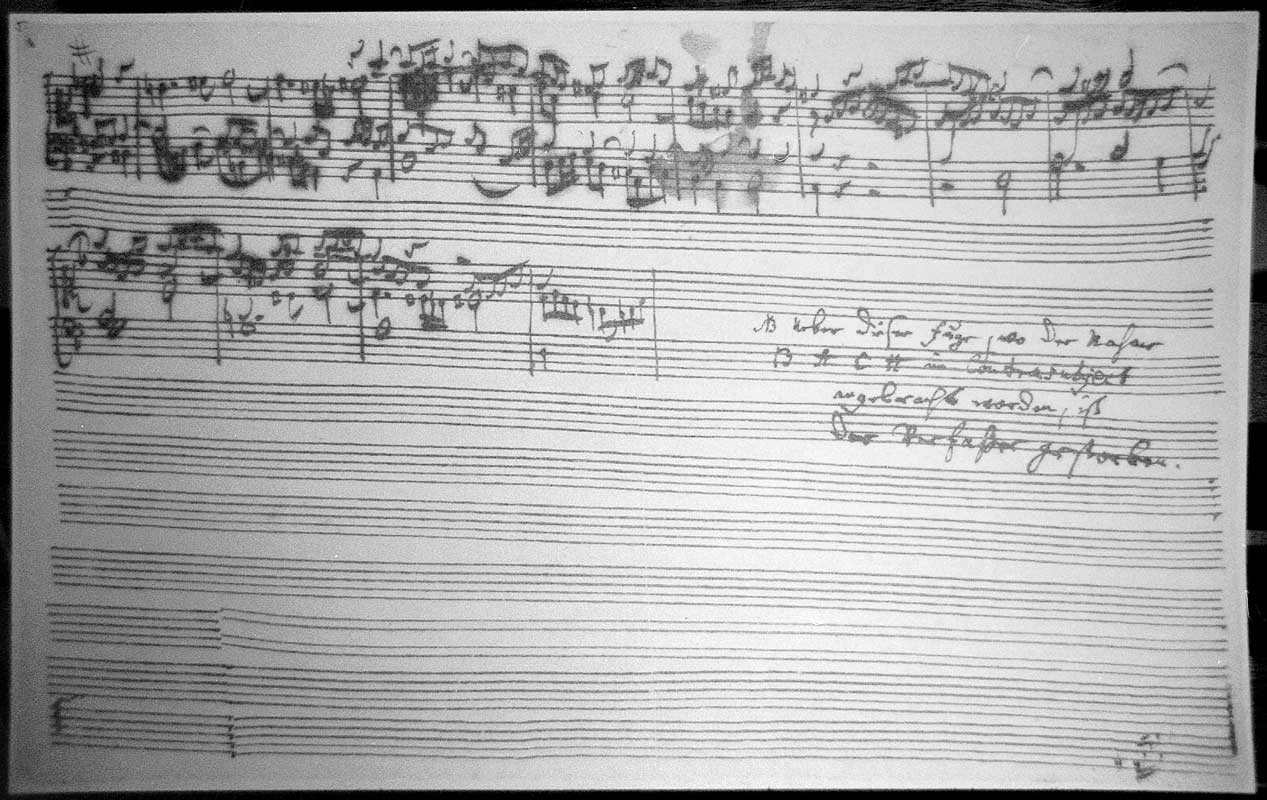 NB Ueber dieser Fuge, wo der Nahme
B A C H im Contrasubject
angebracht worden, ist
Der Verfaßer gestorben.